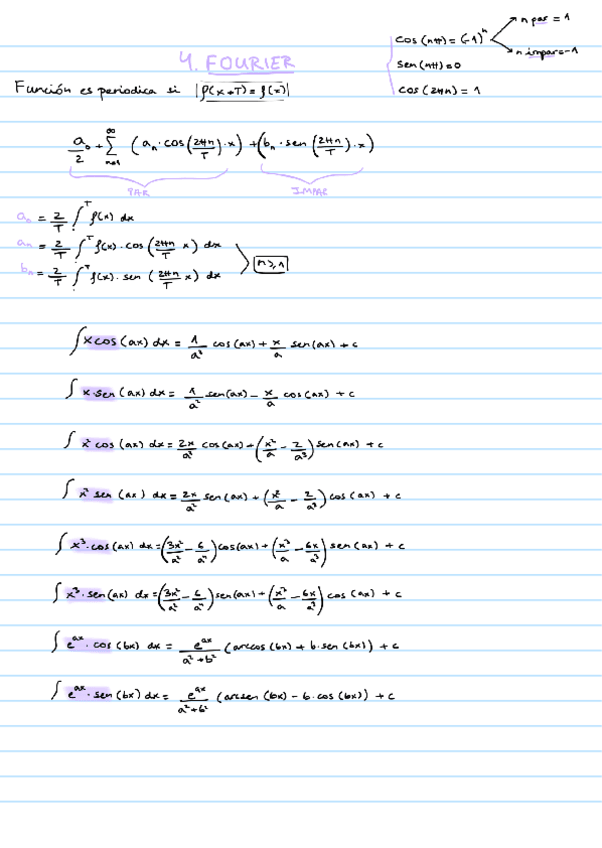 cos(nπ) = (-1)ⁿ
n par = 1
n impar = -1
sen(nπ) = 0
cos(2πn) = 1
4. FOURIER
Función es periodica si |f(x+T) = f(x)|
a₀/2 + ∑_{n=1}^{∞} (aₙ · cos(2πn/T) · x) + (bₙ · sen(2πn/T) · x)
PAR
IMPAR
= 2/T ∫^T f(x) dx
aₙ = 2/T ∫^T f(x) · cos(2πn/T x) dx
bₙ = 2/T ∫^T f(x) · sen(2πn/T x) dx
n ≥ 1
∫ x cos(ax) dx = 1/a² cos(ax) + x/a sen(ax) + c
∫ x·sen(ax) dx = 1/a² sen(ax) - x/a cos(ax) + c
∫ x² cos(ax) dx = 2x/a² cos(ax) + (x²/a - 2/a³) sen(ax) + c
∫ x² sen(ax) dx = 2x/a² sen(ax) + (x²/a - 2/a³) cos(ax) + c
∫ x³·cos(ax) dx = (3x²/a² - 6/a⁴) cos(ax) + (x³/a - 6x/a³) sen(ax) + c
∫ x³·sen(ax) dx = (3x²/a² - 6/a⁴) sen(ax) + (x³/a - 6x/a³) cos(ax) + c
∫ e^{ax} · cos(bx) dx = e^{ax}/(a²+b²) (arcos(bx) + b·sen(bx)) + c
∫ e^{ax} · sen(bx) dx = e^{ax}/(a²+b²) (arcsen(bx) - b·cos(bx)) + c